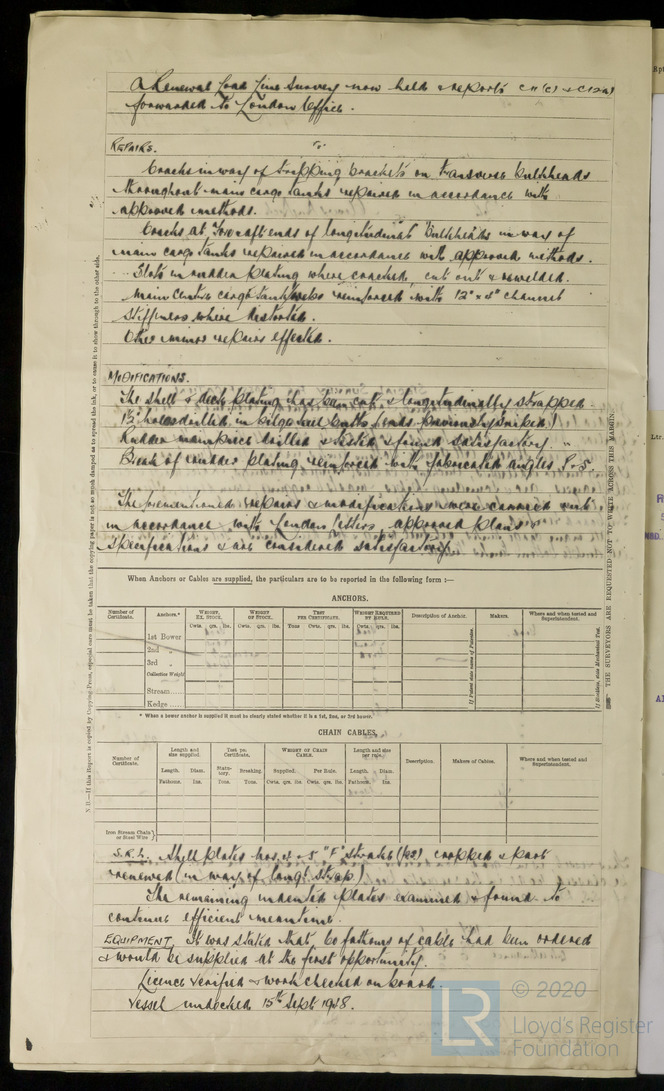 A Renewal Load Line Survey now held & reports C11(c) & C12(a)
forwarded to London Office.
REPAIRS.
Cracks in way of tripping brackets on transverse bulkheads
throughout main cargo tanks repaired in accordance with
approved methods.
Cracks at fore & aft ends of longitudinal bulkheads in way of
main cargo tanks repaired in accordance with approved methods.
Slots in rudder plating where cracked, cut out & rewelded.
Main centre cargo tank webs reinforced with 12" x 4" channel
stiffeners where distorted.
Other minor repairs effected.
MODIFICATIONS.
The shell & deck plating has been cut & longitudinally strapped
1½" holes drilled in bilge keel butts (ends previously sniped)
Rudder mainpiece drilled & tested & found satisfactory
Break of rudder plating reinforced with fabricated angles P & S.
The forementioned repairs & modifications were carried out
in accordance with London letters, approved plans &
specifications & are considered satisfactory.
When Anchors or Cables are supplied, the particulars are to be reported in the following form :—
ANCHORS.
Number of Certificate. Anchors.* Weight, Ex. Stock. Weight of Stock. Test per Certificate. Weight Required by Rule. Description of Anchor. Makers. Where and when tested and Superintendent.
Cwts. qrs. lbs. Cwts. qrs. lbs. Tons Cwts. qrs. lbs. Cwts. qrs. lbs.
1st Bower
2nd "
3rd "
Collective Weight
Stream
Kedge
* When a bower anchor is supplied it must be clearly stated whether it is a 1st, 2nd, or 3rd bower.
CHAIN CABLES.
Number of Certificate. Length and size supplied. Test per Certificate. Weight of Chain Cable. Length and size per rule. Description. Makers of Cables. Where and when tested and Superintendent.
Length. Diam. Statutory. Breaking. Supplied. Per Rule. Length. Diam.
Fathoms. Ins. Tons. Tons. Cwts. qrs. lbs. Cwts. qrs. lbs. Fathoms. Ins.
Iron Stream Chain or Steel Wire
S.R.L. Shell plates Nos. 4 & 5 "F" Strake cropped & part
renewed (in way of longl strap.)
The remaining indented plates examined & found to
continue efficient meantime.
EQUIPMENT. It was stated that 60 fathoms of cable had been ordered
& would be supplied at the first opportunity.
Licence verified & work checked on board.
Vessel undocked 15th Sept 1958.
N.B.—If this Report is copied by Copying Press, especial care must be taken that the copying paper is not so much damped as to spread the ink, or to cause it to show through to the other side.
THE SURVEYORS ARE REQUESTED NOT TO WRITE ACROSS THIS MARGIN.
LR
© 2020
Lloyd's Register
Foundation